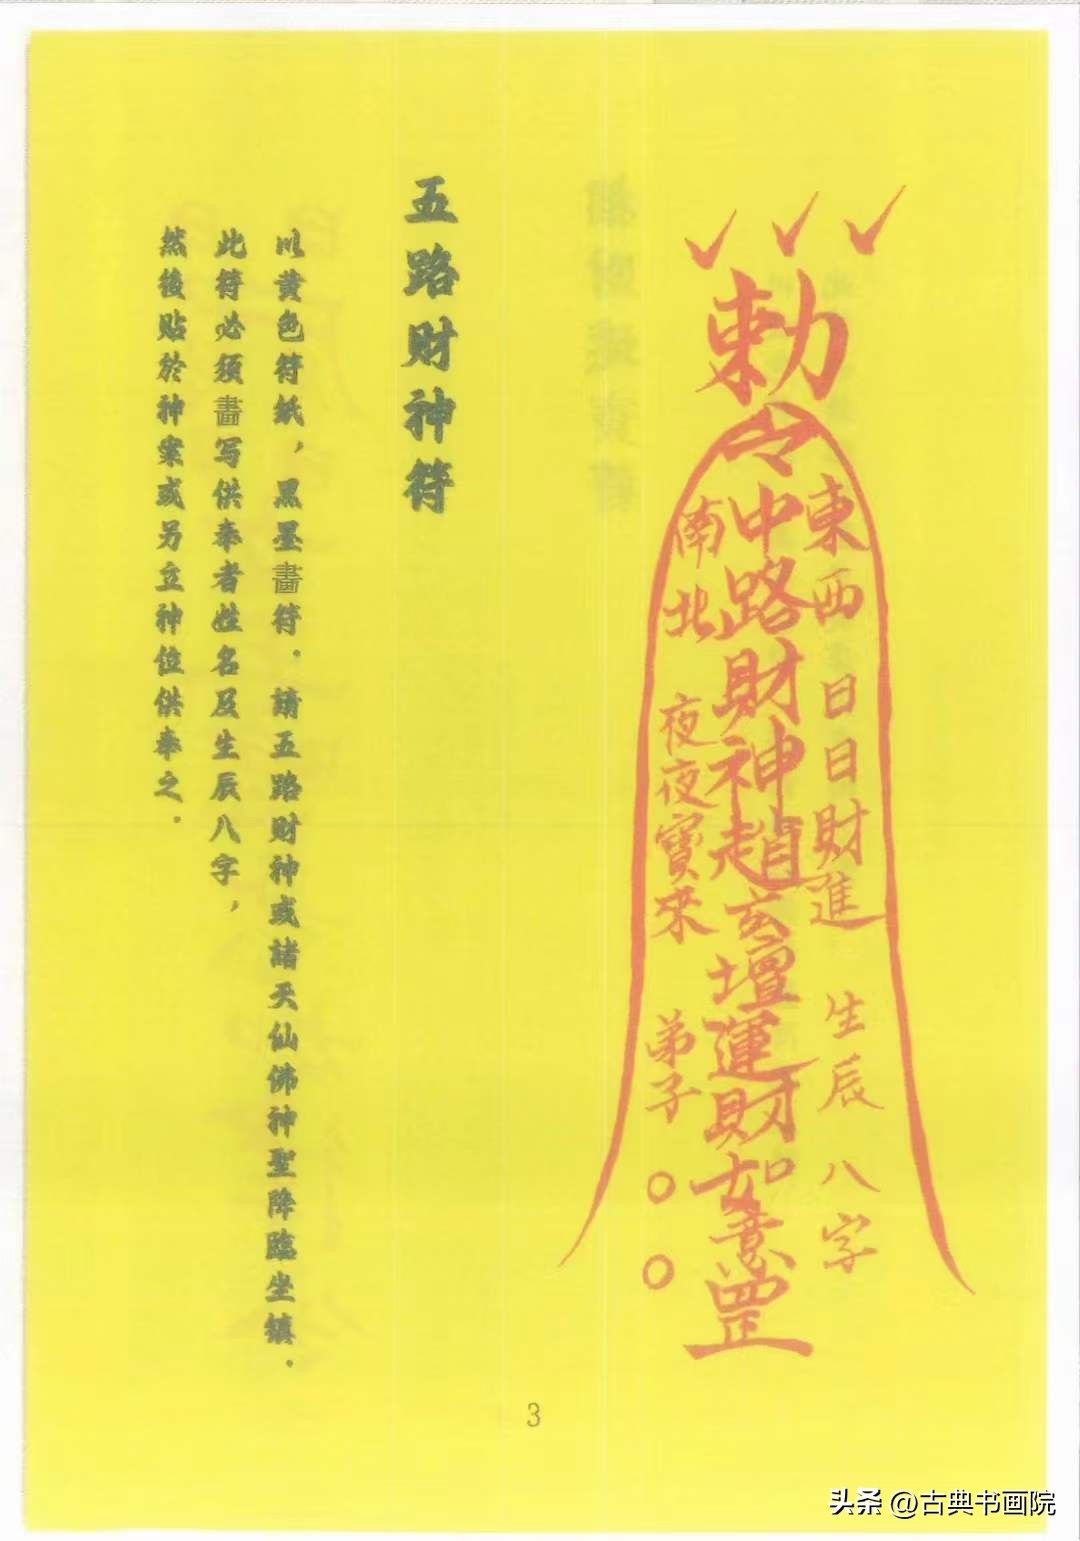 勅令
東西日日財進 生辰八字
中路財神趙玄壇運財如意罡
南北 夜夜寶來 弟子○○
五路财神符
以黄色符紙，黑墨畵符．請五路财神或諸天仙佛神聖降臨坐镇．
此符必须畵写供奉者姓名及生辰八字，
然後贴於神案或另立神位供奉之．
3
头条 @古典书画院